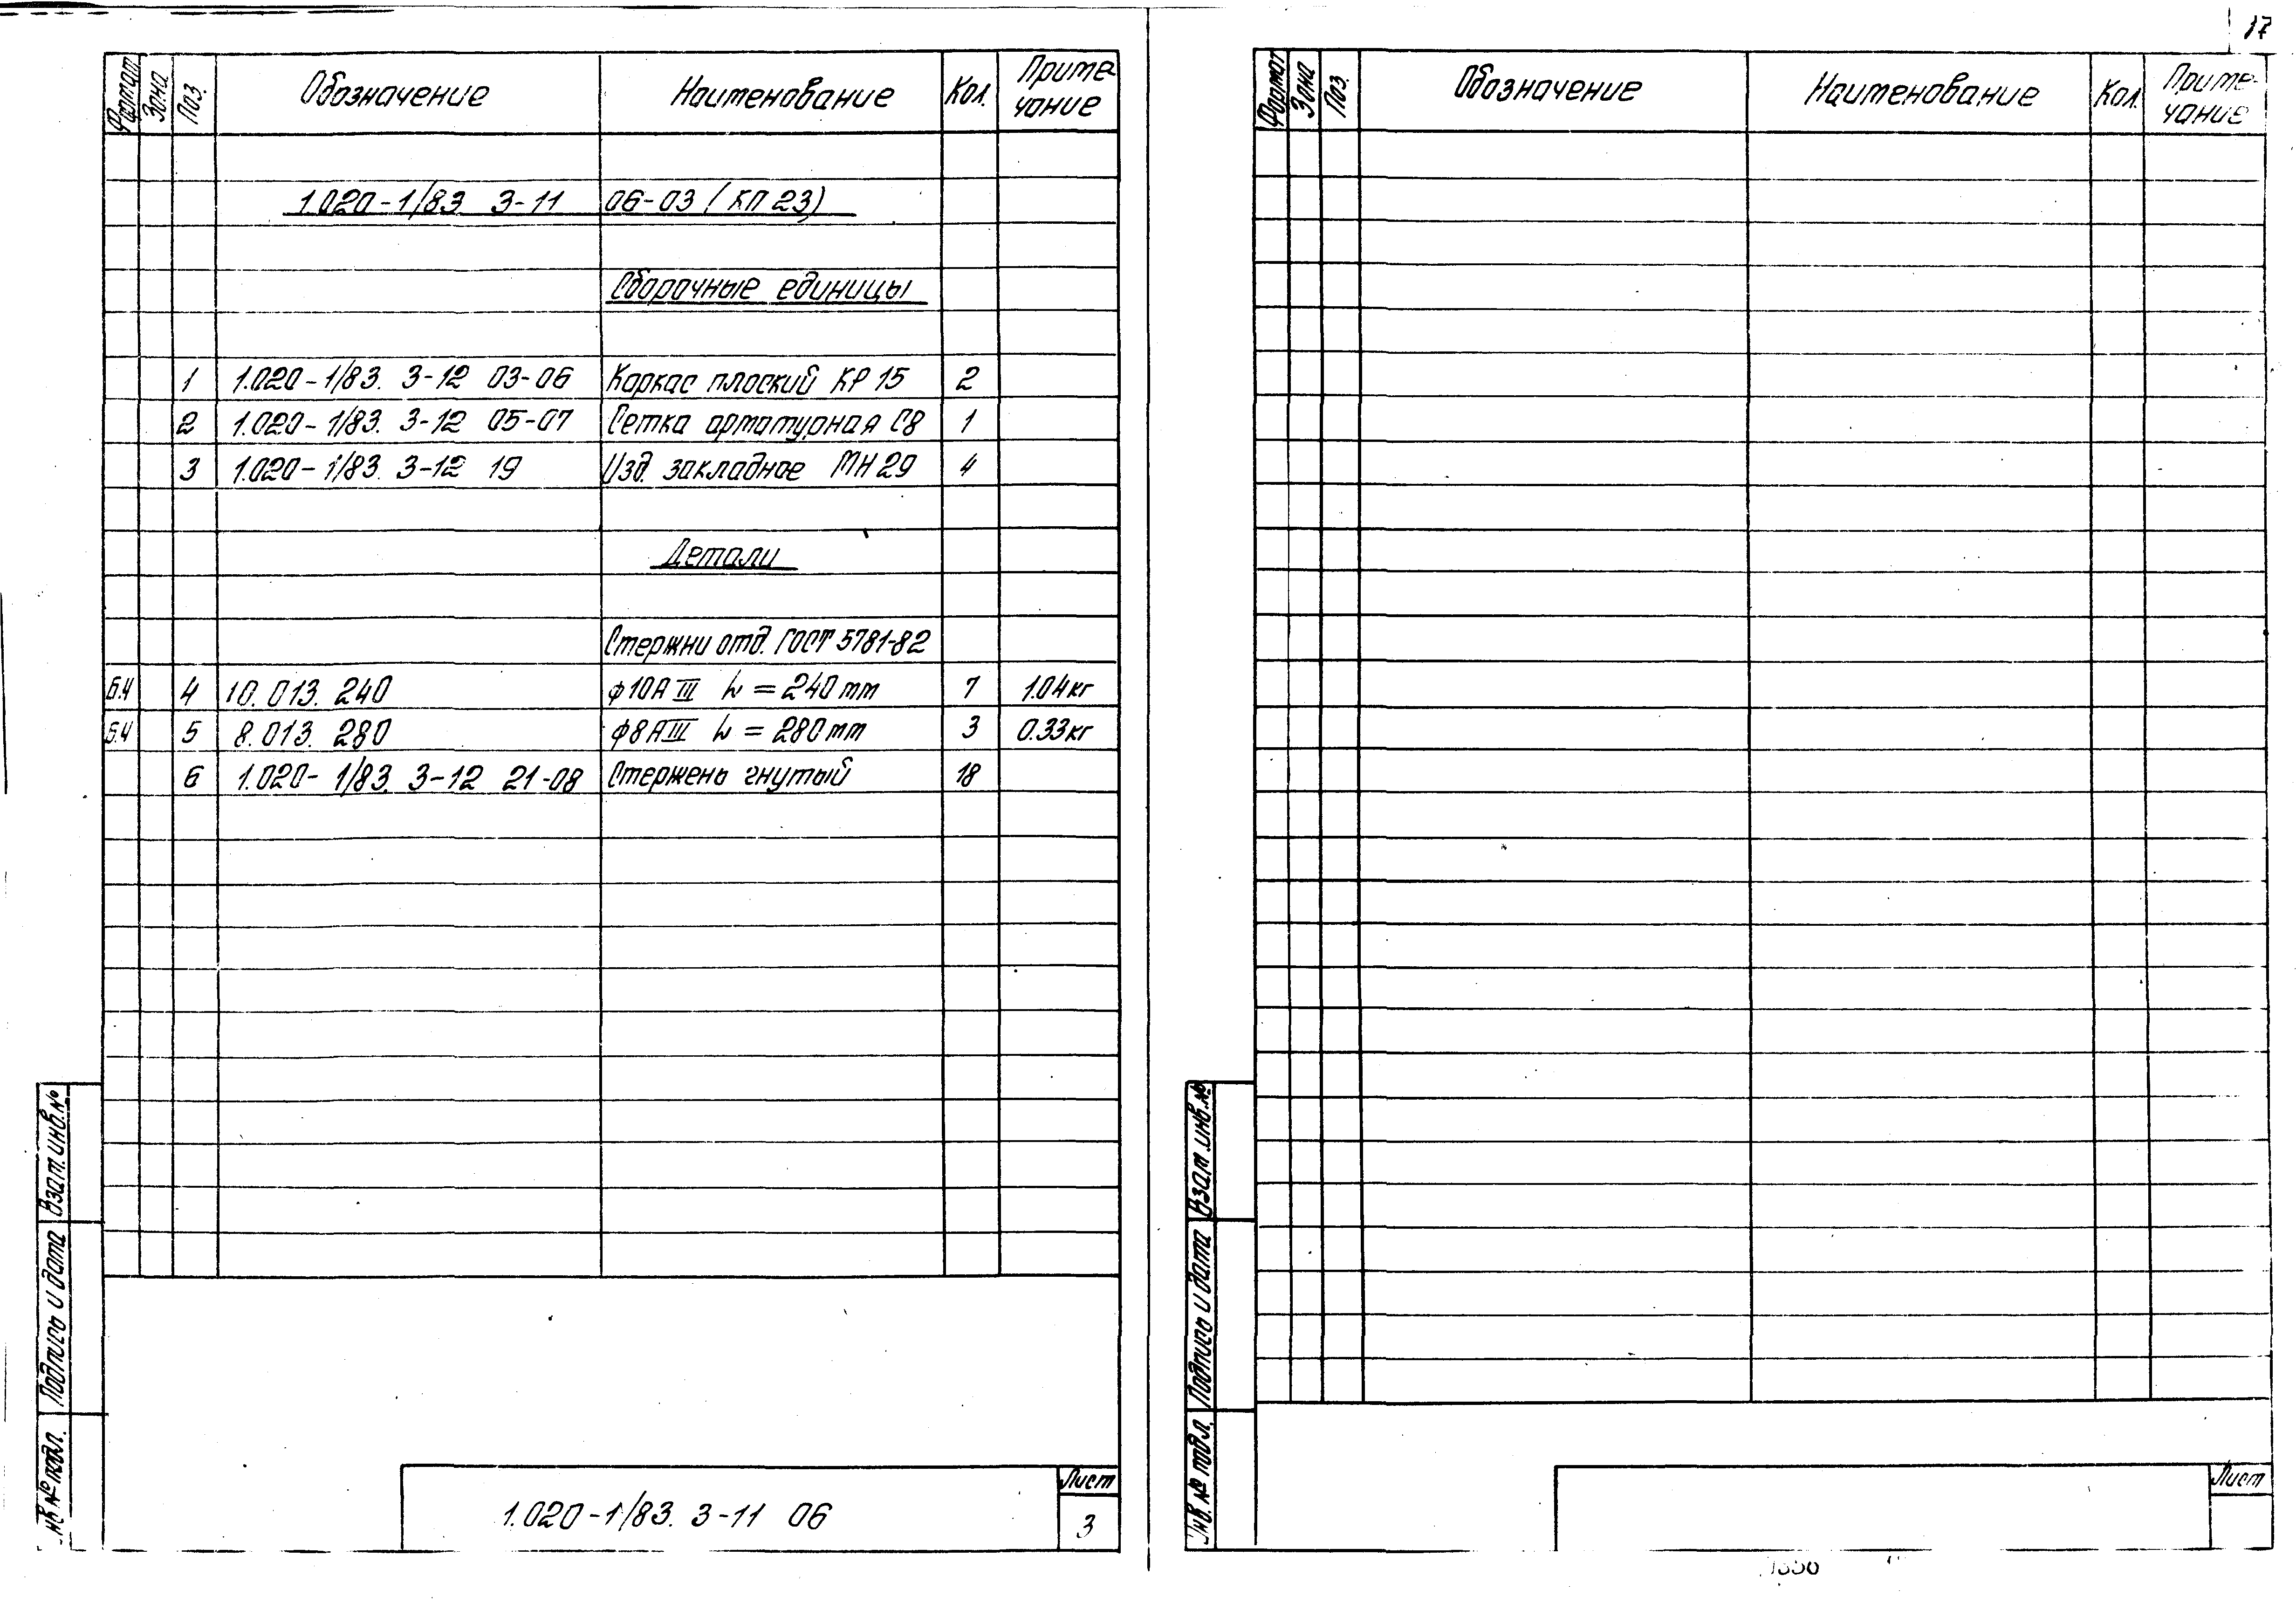 17
Формат Зона Поз. Обозначение Наименование Кол. Приме-
чание
1.020-1/83 3-11 06-03 (КП 23)
Сборочные единицы
1 1.020-1/83. 3-12 03-06 Каркас плоский КР 15 2
2 1.020-1/83. 3-12 05-07 Сетка арматурная С8 1
3 1.020-1/83. 3-12 19 Изд. закладное МН 29 4
Детали
Стержни отд. ГОСТ 5781-82
Б.Ч 4 10. 013. 240 ф10АIII L = 240 мм 7 1.04 кг
Б.Ч 5 8. 013. 280 ф8АIII L = 280 мм 3 0.33 кг
6 1.020-1/83. 3-12 21-08 Стержень гнутый 18
Взам. инв. №
Подпись и дата
Инв. № подл.
1.020-1/83. 3-11 06
Лист
3
Формат Зона Поз. Обозначение Наименование Кол. Приме-
чание
Взам. инв. №
Подпись и дата
Инв. № подл.
Лист